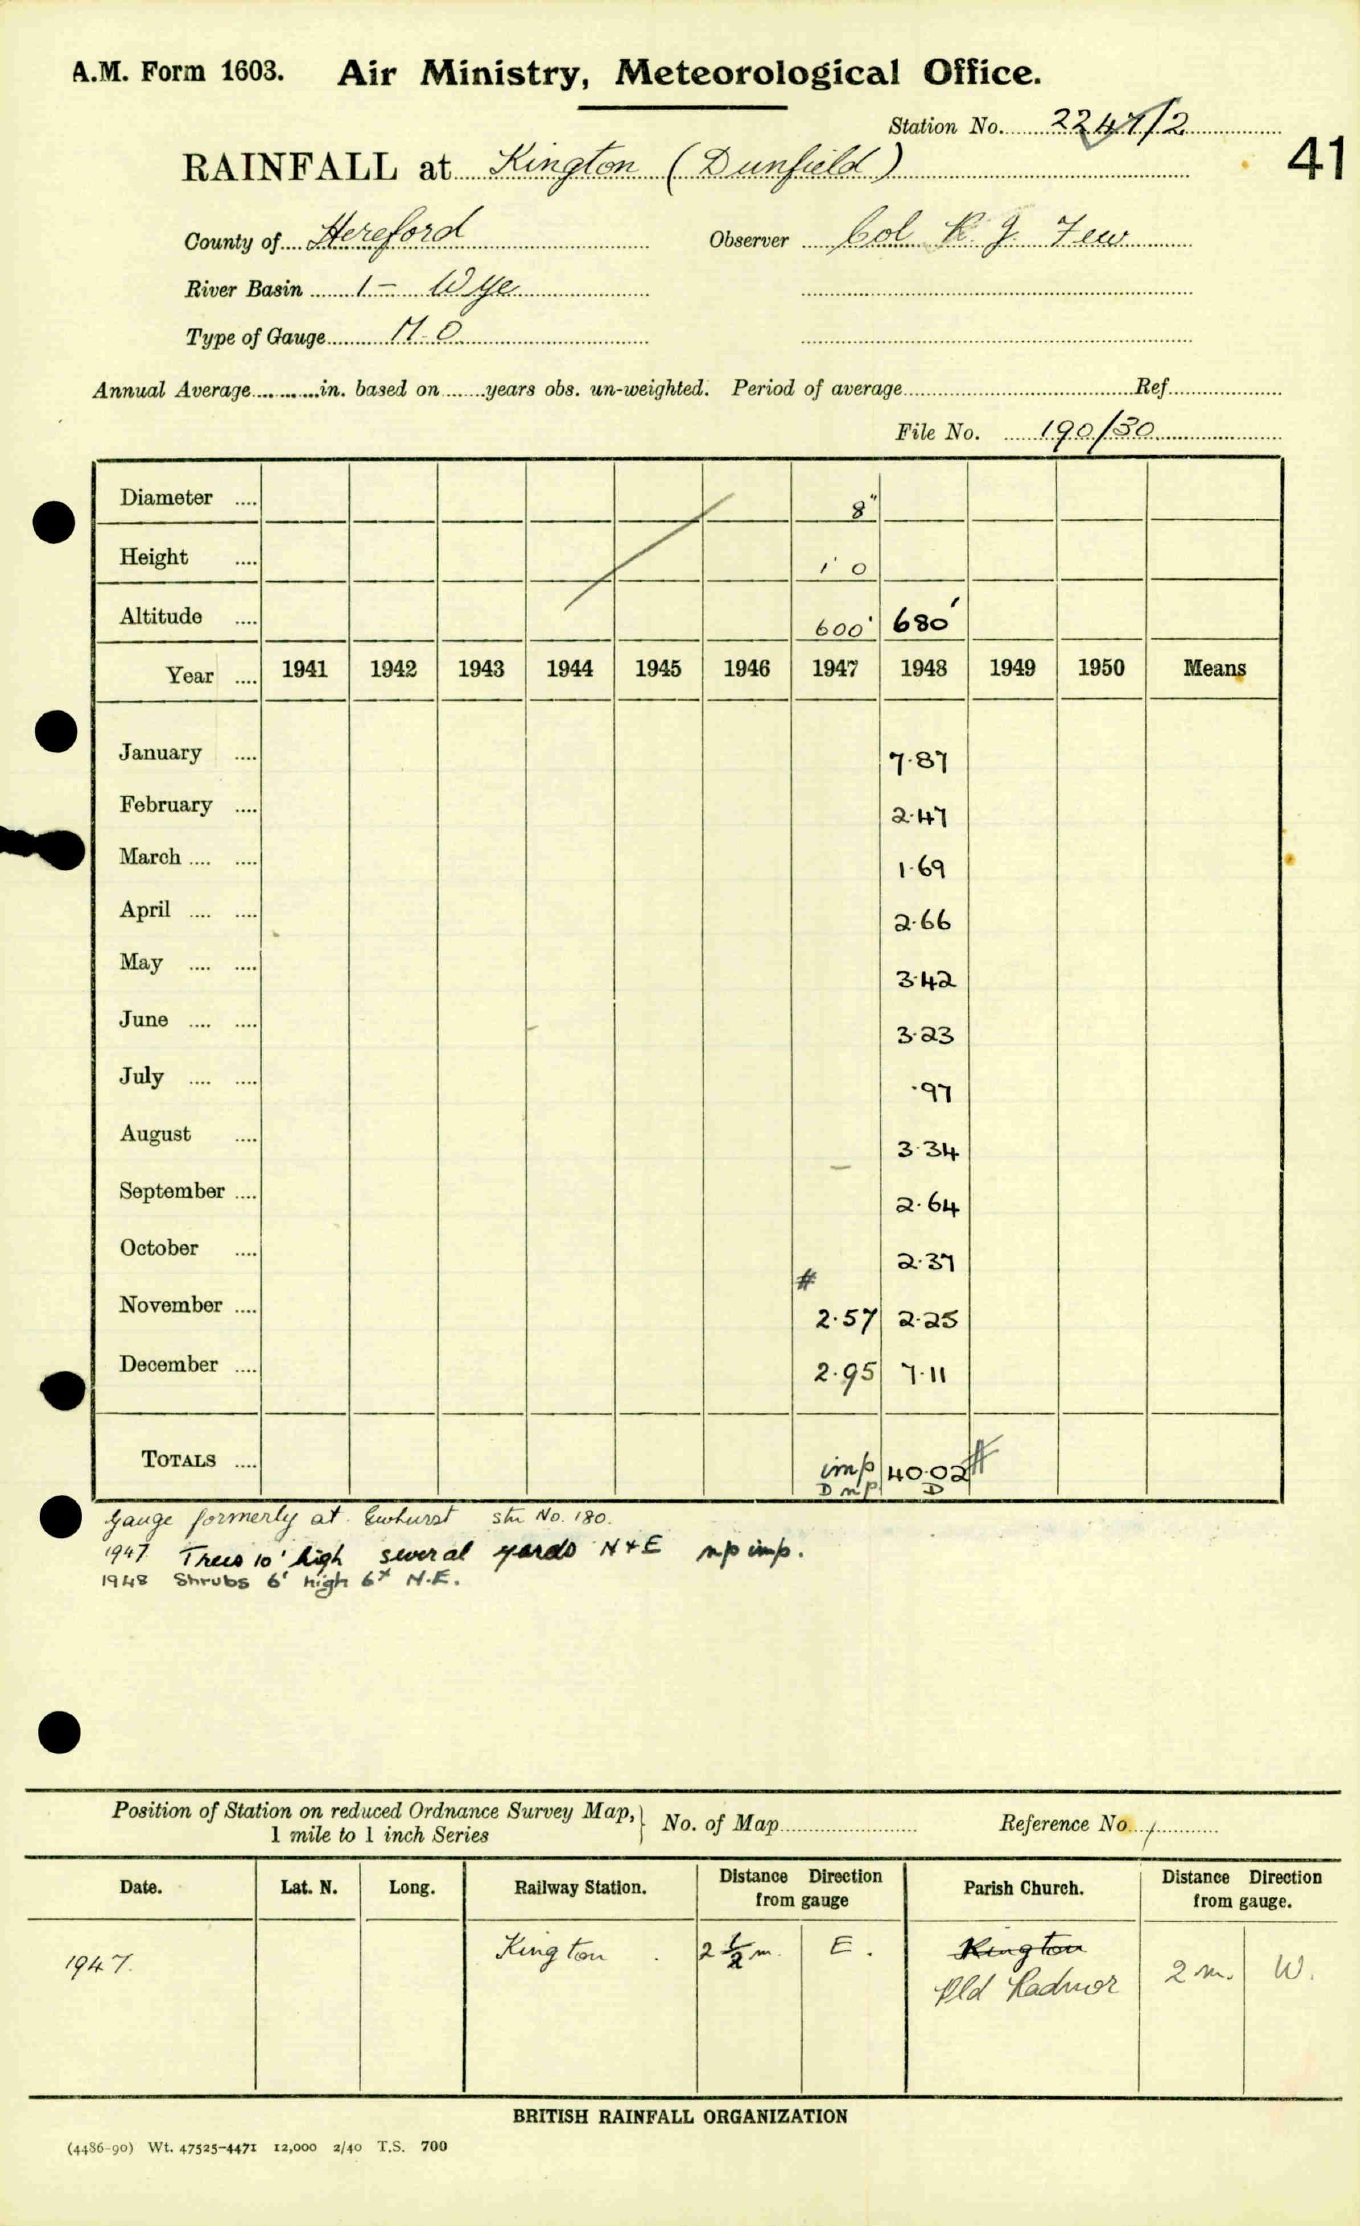 A.M. Form 1603. Air Ministry, Meteorological Office.
Station No. 2247/2
41
RAINFALL at Kington (Dunfield)
County of Hereford Observer Col R. J. Few
River Basin 1 - Wye
Type of Gauge M.O
Annual Average in. based on years obs. un-weighted. Period of average Ref.
File No. 190/30
Diameter .... 8"
Height .... 1' 0
Altitude .... 600' 680'
Year .... 1941 1942 1943 1944 1945 1946 1947 1948 1949 1950 Means
January .... 7.87
February .... 2.47
March .... .... 1.69
April .... .... 2.66
May .... .... 3.42
June .... .... 3.23
July .... .... .97
August .... 3.34
September .... 2.64
October .... 2.37
#
November .... 2.57 2.25
December .... 2.95 7.11
TOTALS .... imp 40.02 #
D np D
Gauge formerly at Ewhurst stn No. 180.
1947 Trees 10' high several yards N + E np imp.
1948 Shrubs 6' high 6x N.E.
Position of Station on reduced Ordnance Survey Map, 1 mile to 1 inch Series } No. of Map Reference No. 1
Date. Lat. N. Long. Railway Station. Distance Direction from gauge Parish Church. Distance Direction from gauge.
1947. Kington. 2 1/2 m. E. Kington
Old Radnor 2 m. W.
BRITISH RAINFALL ORGANIZATION
(4486-90) Wt. 47525-4471 12,000 2/40 T.S. 700